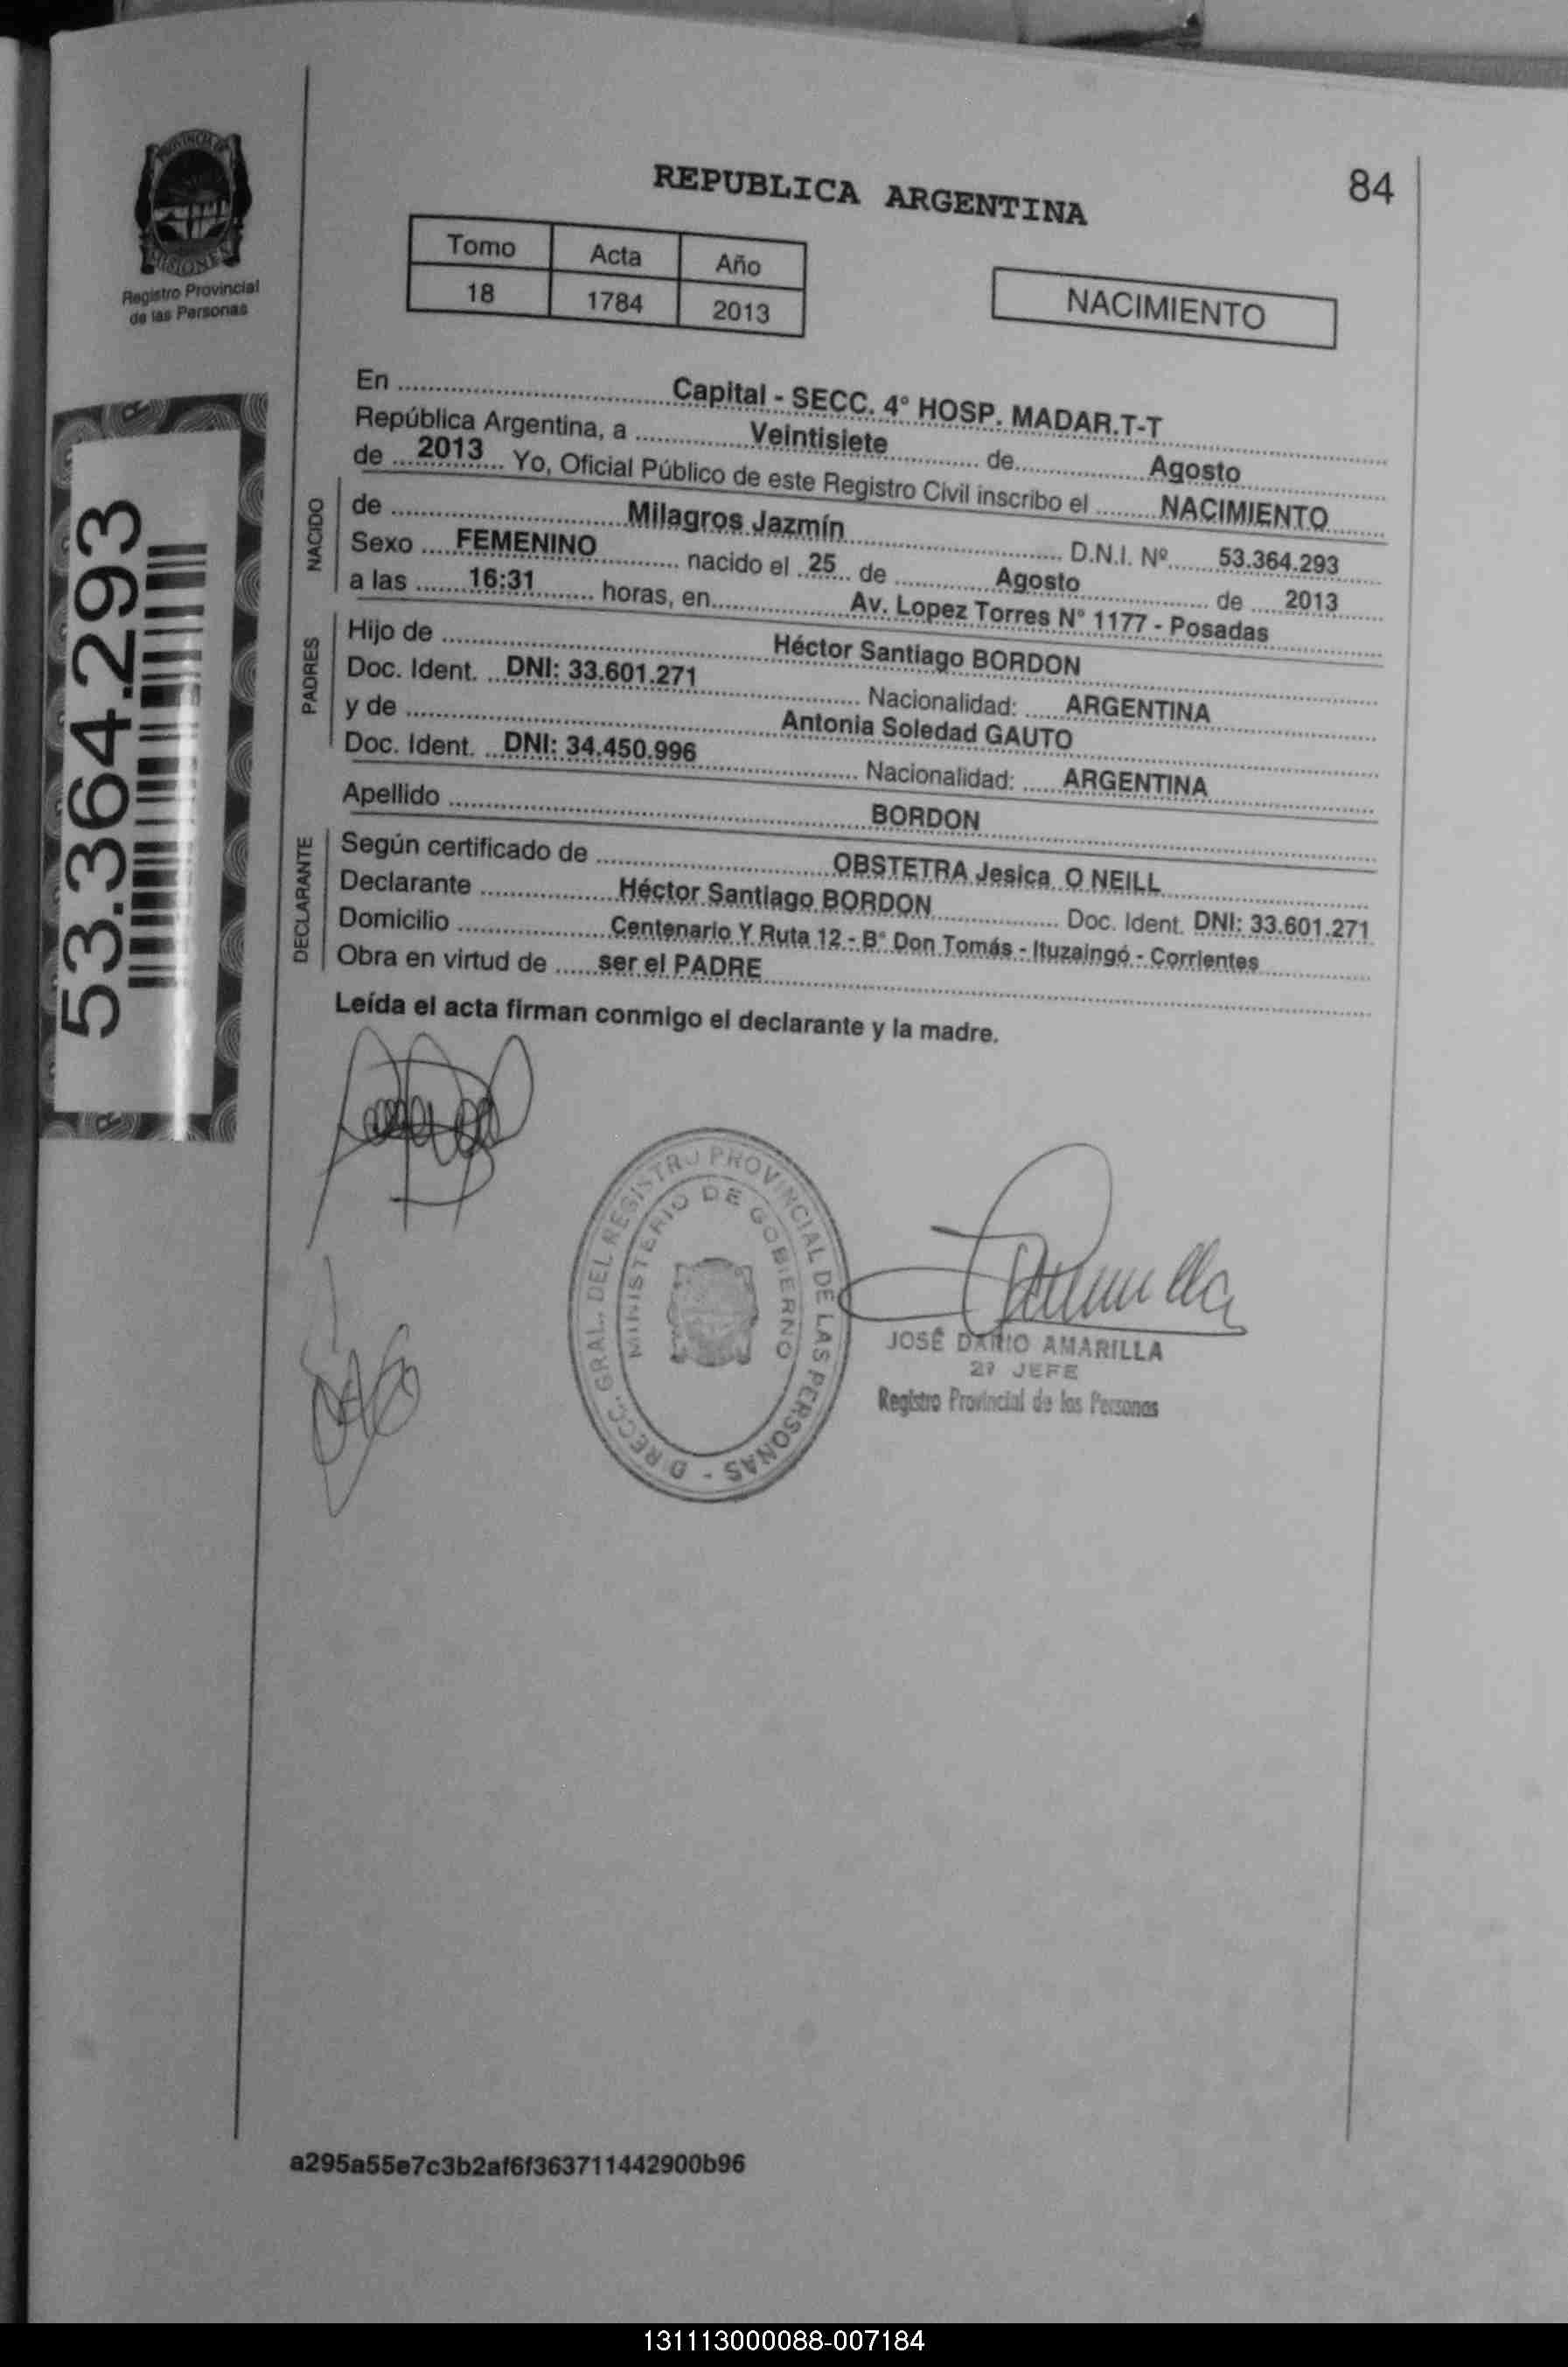 PROVINCIA DE
MISIONES
Registro Provincial
de las Personas
53.364.293
REPUBLICA ARGENTINA
84
Tomo Acta Año
18 1784 2013
NACIMIENTO
En Capital - SECC. 4° HOSP. MADAR.T-T
República Argentina, a Veintisiete de Agosto
de 2013 Yo, Oficial Público de este Registro Civil inscribo el NACIMIENTO
NACIDO
de Milagros Jazmín D.N.I. Nº 53.364.293
Sexo FEMENINO nacido el 25 de Agosto de 2013
a las 16:31 horas, en Av. Lopez Torres N° 1177 - Posadas
PADRES
Hijo de Héctor Santiago BORDON
Doc. Ident. DNI: 33.601.271 Nacionalidad: ARGENTINA
y de Antonia Soledad GAUTO
Doc. Ident. DNI: 34.450.996 Nacionalidad: ARGENTINA
Apellido BORDON
DECLARANTE
Según certificado de OBSTETRA Jesica O NEILL
Declarante Héctor Santiago BORDON Doc. Ident. DNI: 33.601.271
Domicilio Centenario Y Ruta 12 - B° Don Tomás - Ituzaingó - Corrientes
Obra en virtud de ser el PADRE
Leída el acta firman conmigo el declarante y la madre.
DIRECC. GRAL. DEL REGISTRO PROVINCIAL DE LAS PERSONAS -
MINISTERIO DE GOBIERNO
JOSÉ DARIO AMARILLA
2º JEFE
Registro Provincial de las Personas
a295a55e7c3b2af6f363711442900b96
131113000088-007184